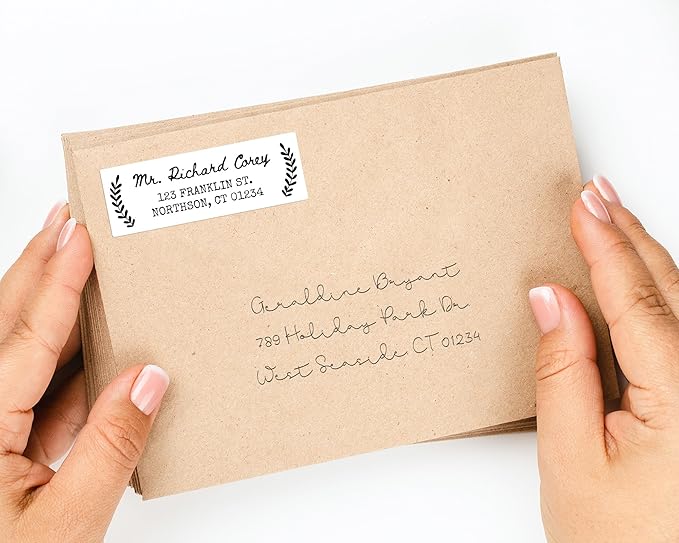 Mr. Richard Corey
123 FRANKLIN ST.
NORTHSON, CT 01234
Geraldine Bryant
789 Holiday Park Dr.
West Seaside CT 01234